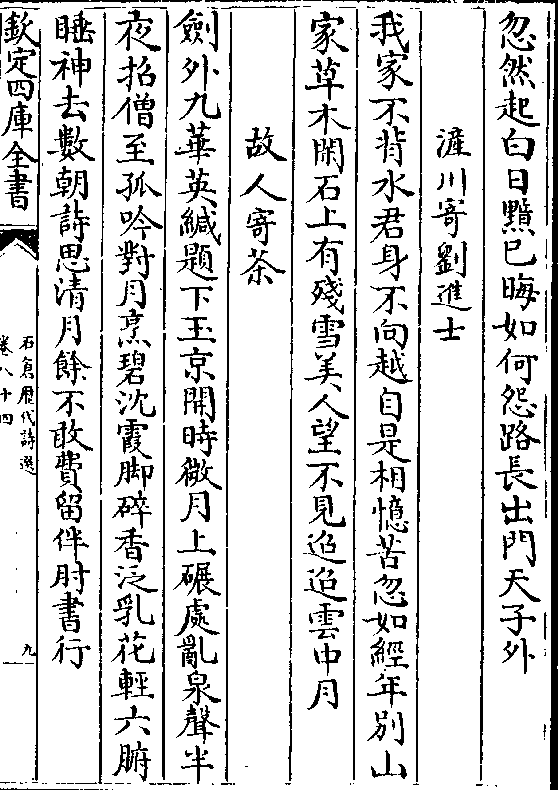 忽然起白日黯已晦如何怨路長出門天子外
滻川寄劉進士
我家不背水君身不向越自是相憶苦忽如經年別山
家草木閒石上有殘雪美人望不見迢迢雲中月
故人寄茶
劒外九華英緘題下玉京開時微月上碾處亂泉聲半
夜招僧至孤吟對月烹碧沈霞脚碎香泛乳花輕六腑
睡神去數朝詩思清月餘不敢費留伴肘書行
欽定四庫全書
石倉歷代詩選
卷八十四
九